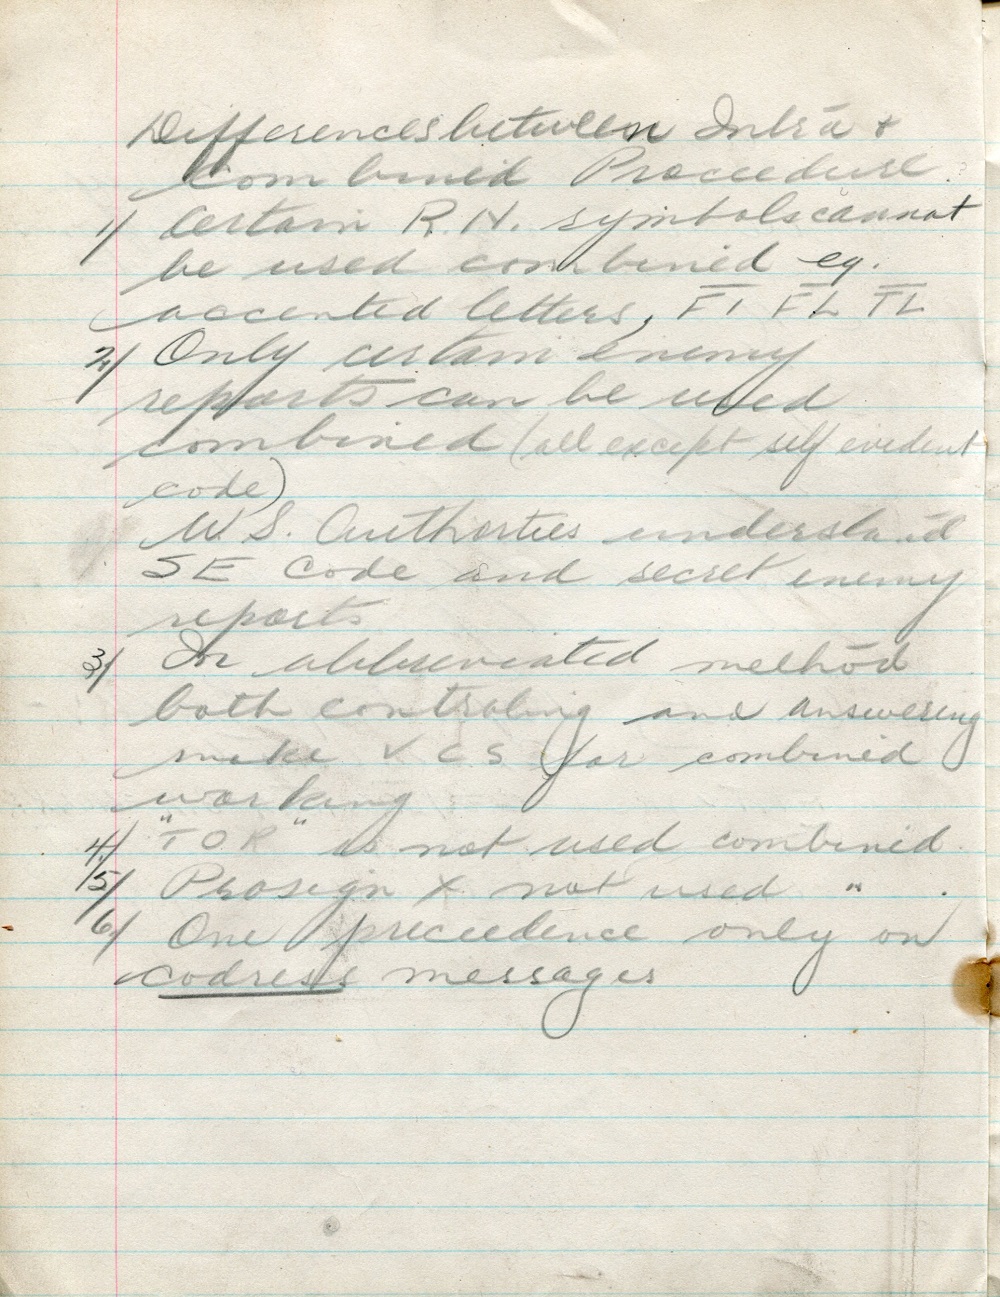 Differences between Intra +
Combined Proceedure.
1/ Certain R.N. symbols cannot
be used combined eg.
accented letters, F̅I̅ F̅L̅ T̅L̅
2/ Only certain enemy
reports can be used
combined (all except self evident
code)
Authorties understand
SE Code and secret enemy
reports
3/ In abbreviated method
both controling and answering
make V C S for combined
working
4/ "TOR" is not used combined.
5/ Prosign X not used " .
6/ One preceedence only on
codress messages